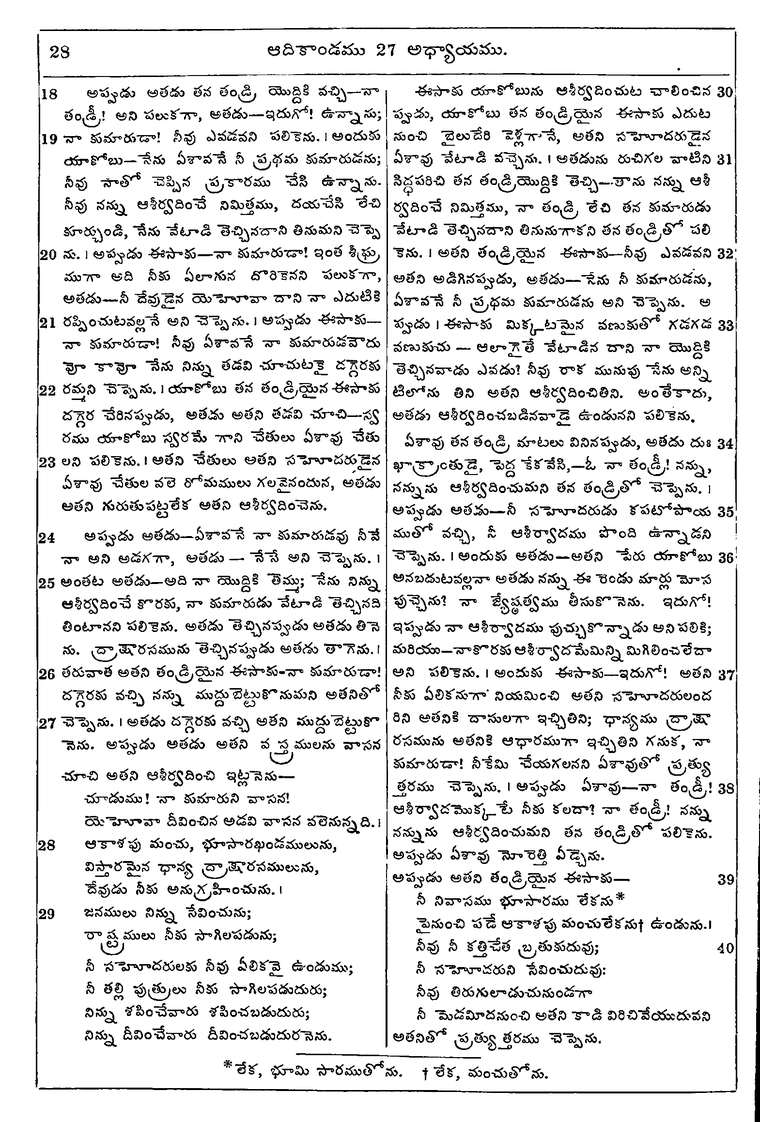 28 ఆదికాండము 27 అధ్యాయము.
18 అప్పుడు అతడు తన తండ్రి యొద్దికి వచ్చి—నా
తండ్రీ! అని పలుకగా, అతడు—ఇదుగో! ఉన్నాను;
19 నా కుమారుడా! నీవు ఎవడవని పలికెను. । అందుకు
యాకోబు—నేను ఏశావనే నీ ప్రథమ కుమారుడను;
నీవు నాతో చెప్పిన ప్రకారము చేసి ఉన్నాను.
నీవు నన్ను ఆశీర్వదించే నిమిత్తము, దయచేసి లేచి
కూర్చుండి, నేను వేటాడి తెచ్చినదాని తినుమని చెప్పె
20 ను. । అప్పుడు ఈసాకు—నా కుమారుడా! ఇంత శీఘ్ర
ముగా అది నీకు ఏలాగున దొరికెనని పలుకగా,
అతడు—నీ దేవుడైన యెహోవా దాని నా ఎదుటికి
21 రప్పించుటవల్లనే అని చెప్పెను. । అప్పుడు ఈసాకు—
నా కుమారుడా! నీవు ఏశావనే నా కుమారుడవౌదు
వో కావో నేను నిన్ను తడవి చూచుటకై దగ్గెరకు
22 రమ్మని చెప్పెను. । యాకోబు తన తండ్రియైన ఈసాకు
దగ్గెర చేరినప్పుడు, అతడు అతని తడవి చూచి—స్వ
రము యాకోబు స్వరమే గాని చేతులు ఏశావు చేతు
23 లని పలికెను. । అతని చేతులు అతని సహోదరుడైన
ఏశావు చేతుల వలె రోమములు గలవైనందున, అతడు
అతని గురుతుపట్టలేక అతని ఆశీర్వదించెను.
24 అప్పుడు అతడు—ఏశావనే నా కుమారుడవు నీవే
నా అని అడగగా, అతడు — నేనే అని చెప్పెను. ।
25 అంతట అతడు—అది నా యొద్దికి తెమ్ము; నేను నిన్ను
ఆశీర్వదించే కొరకు, నా కుమారుడు వేటాడి తెచ్చినది
తింటానని పలికెను. అతడు తెచ్చినప్పుడు అతడు తినె
ను. ద్రాక్షారసమును తెచ్చినప్పుడు అతడు తాగెను. ।
26 తరువాత అతని తండ్రియైన ఈసాకు-నా కుమారుడా!
దగ్గెరకు వచ్చి నన్ను ముద్దుబెట్టుకొనుమని అతనితో
27 చెప్పెను. । అతడు దగ్గెరకు వచ్చి అతని ముద్దుబెట్టుకొ
నెను. అప్పుడు అతడు అతని వస్త్రములను వాసన
చూచి అతని ఆశీర్వదించి ఇట్లనెను—
చూడుము! నా కుమారుని వాసన!
యెహోవా దీవించిన అడవి వాసన వలెనున్నది. ।
28 ఆకాశపు మంచు, భూసారఖండములును,
విస్తారమైన ధాన్య ద్రాక్షారసములును,
దేవుడు నీకు అనుగ్రహించును. ।
29 జనములు నిన్ను సేవించును;
రాష్ట్రములు నీకు సాగిలపడును;
నీ సహోదరులకు నీవు ఏలికవై ఉండుము;
నీ తల్లి పుత్రులు నీకు సాగిలపడుదురు;
నిన్ను శపించేవారు శపించబడుదురు;
నిన్ను దీవించేవారు దీవించబడుదురనెను.
ఈసాకు యాకోబును ఆశీర్వదించుట చాలించిన 30
ప్పుడు, యాకోబు తన తండ్రియైన ఈసాకు ఎదుట
నుంచి బైలుదేరి వెళ్లగానే, అతని సహోదరుడైన
ఏశావు వేటాడి వచ్చెను. । అతడును రుచిగల వాటిని 31
సిద్ధపరిచి తన తండ్రియొద్దికి తెచ్చి—తాను నన్ను ఆశీ
ర్వదించే నిమిత్తము, నా తండ్రి లేచి తన కుమారుడు
వేటాడి తెచ్చినదాని తినునుగాకని తన తండ్రితో పలి
కెను. । అతని తండ్రియైన ఈసాకు—నీవు ఎవడవని 32
అతని అడిగినప్పుడు, అతడు—నేను నీ కుమారుడను,
ఏశావనే నీ ప్రథమ కుమారుడను అని చెప్పెను. అ
ప్పుడు । ఈసాకు మిక్కటమైన వణుకుతో గడగడ 33
వణుకుచు — ఆలాగైతే వేటాడిన దాని నా యొద్దికి
తెచ్చినవాడు ఎవడు? నీవు రాక మునుపు నేను అన్ని
టిలోను తిని అతని ఆశీర్వదించితిని. అంతేకాదు,
అతడు ఆశీర్వదించబడినవాడై ఉండునని పలికెను.
ఏశావు తన తండ్రి మాటలు వినినప్పుడు, అతడు దుః 34
ఖాక్రాంతుడై, పెద్ద కేకవేసి,—ఓ నా తండ్రీ! నన్ను,
నన్నును ఆశీర్వదించుమని తన తండ్రితో చెప్పెను. ।
అప్పుడు అతడు—నీ సహోదరుడు కపటోపాయ 35
ముతో వచ్చి, నీ ఆశీర్వాదము పొంది ఉన్నాడని
చెప్పెను. । అందుకు అతడు—అతని పేరు యాకోబు 36
అనబడుటవల్లనా అతడు నన్ను ఈ రెండు మార్లు మోస
పుచ్చెను? నా జ్యేష్ఠత్వము తీసుకొనెను. ఇదుగో!
ఇప్పుడు నా ఆశీర్వాదము పుచ్చుకొన్నాడు అని పలికి;
మరియు—నాకొరకు ఆశీర్వాదమేమిన్ని మిగిలించలేదా
అని పలికెను. । అందుకు ఈసాకు—ఇదుగో! అతని 37
నీకు ఏలికనుగా నియమించి అతని సహోదరులంద
రిని అతనికి దాసులగా ఇచ్చితిని; ధాన్యము ద్రాక్షా
రసమును అతనికి ఆధారముగా ఇచ్చితిని గనుక, నా
కుమారుడా! నీకేమి చేయగలనని ఏశావుతో ప్రత్యు
త్తరము చెప్పెను. । అప్పుడు ఏశావు—నా తండ్రీ! 38
ఆశీర్వాదమొక్కటే నీకు కలదా? నా తండ్రీ! నన్ను
నన్నును ఆశీర్వదించుమని తన తండ్రితో పలికెను.
అప్పుడు ఏశావు మోరెత్తి ఏడ్చెను.
అప్పుడు అతని తండ్రియైన ఈసాకు— 39
నీ నివాసము భూసారము లేకను*
పైనుంచి పడే ఆకాశపు మంచులేకను† ఉండును. ।
నీవు నీ కత్తిచేత బ్రతుకుదువు; 40
నీ సహోదరుని సేవించుదువు:
నీవు తిరుగులాడుచునుండగా
నీ మెడమీదనుంచి అతని కాడి విరిచివేయుదువని
అతనితో ప్రత్యుత్తరము చెప్పెను.
* లేక, భూమి సారముతోను. † లేక, మంచుతోను.